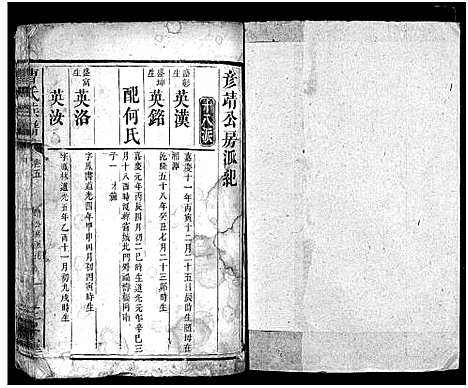 彥靖公房派紀
十六派
盛彰生
英漢
嘉慶十一年丙寅十二月二十五日辰時生隨母在
湘潭
盛坤生
英銘
乾隆五十八年癸丑七月二十三卯時生
配何氏
嘉慶元年丙辰四月初二巳時生道光元年辛巳三
月十八酉時
子一
盛富生
英洛
字鳳書道光四年甲申四月初四寅時生
英汝
字鳳林道光五年乙酉十一月初九戌時生
曹氏族譜
卷五